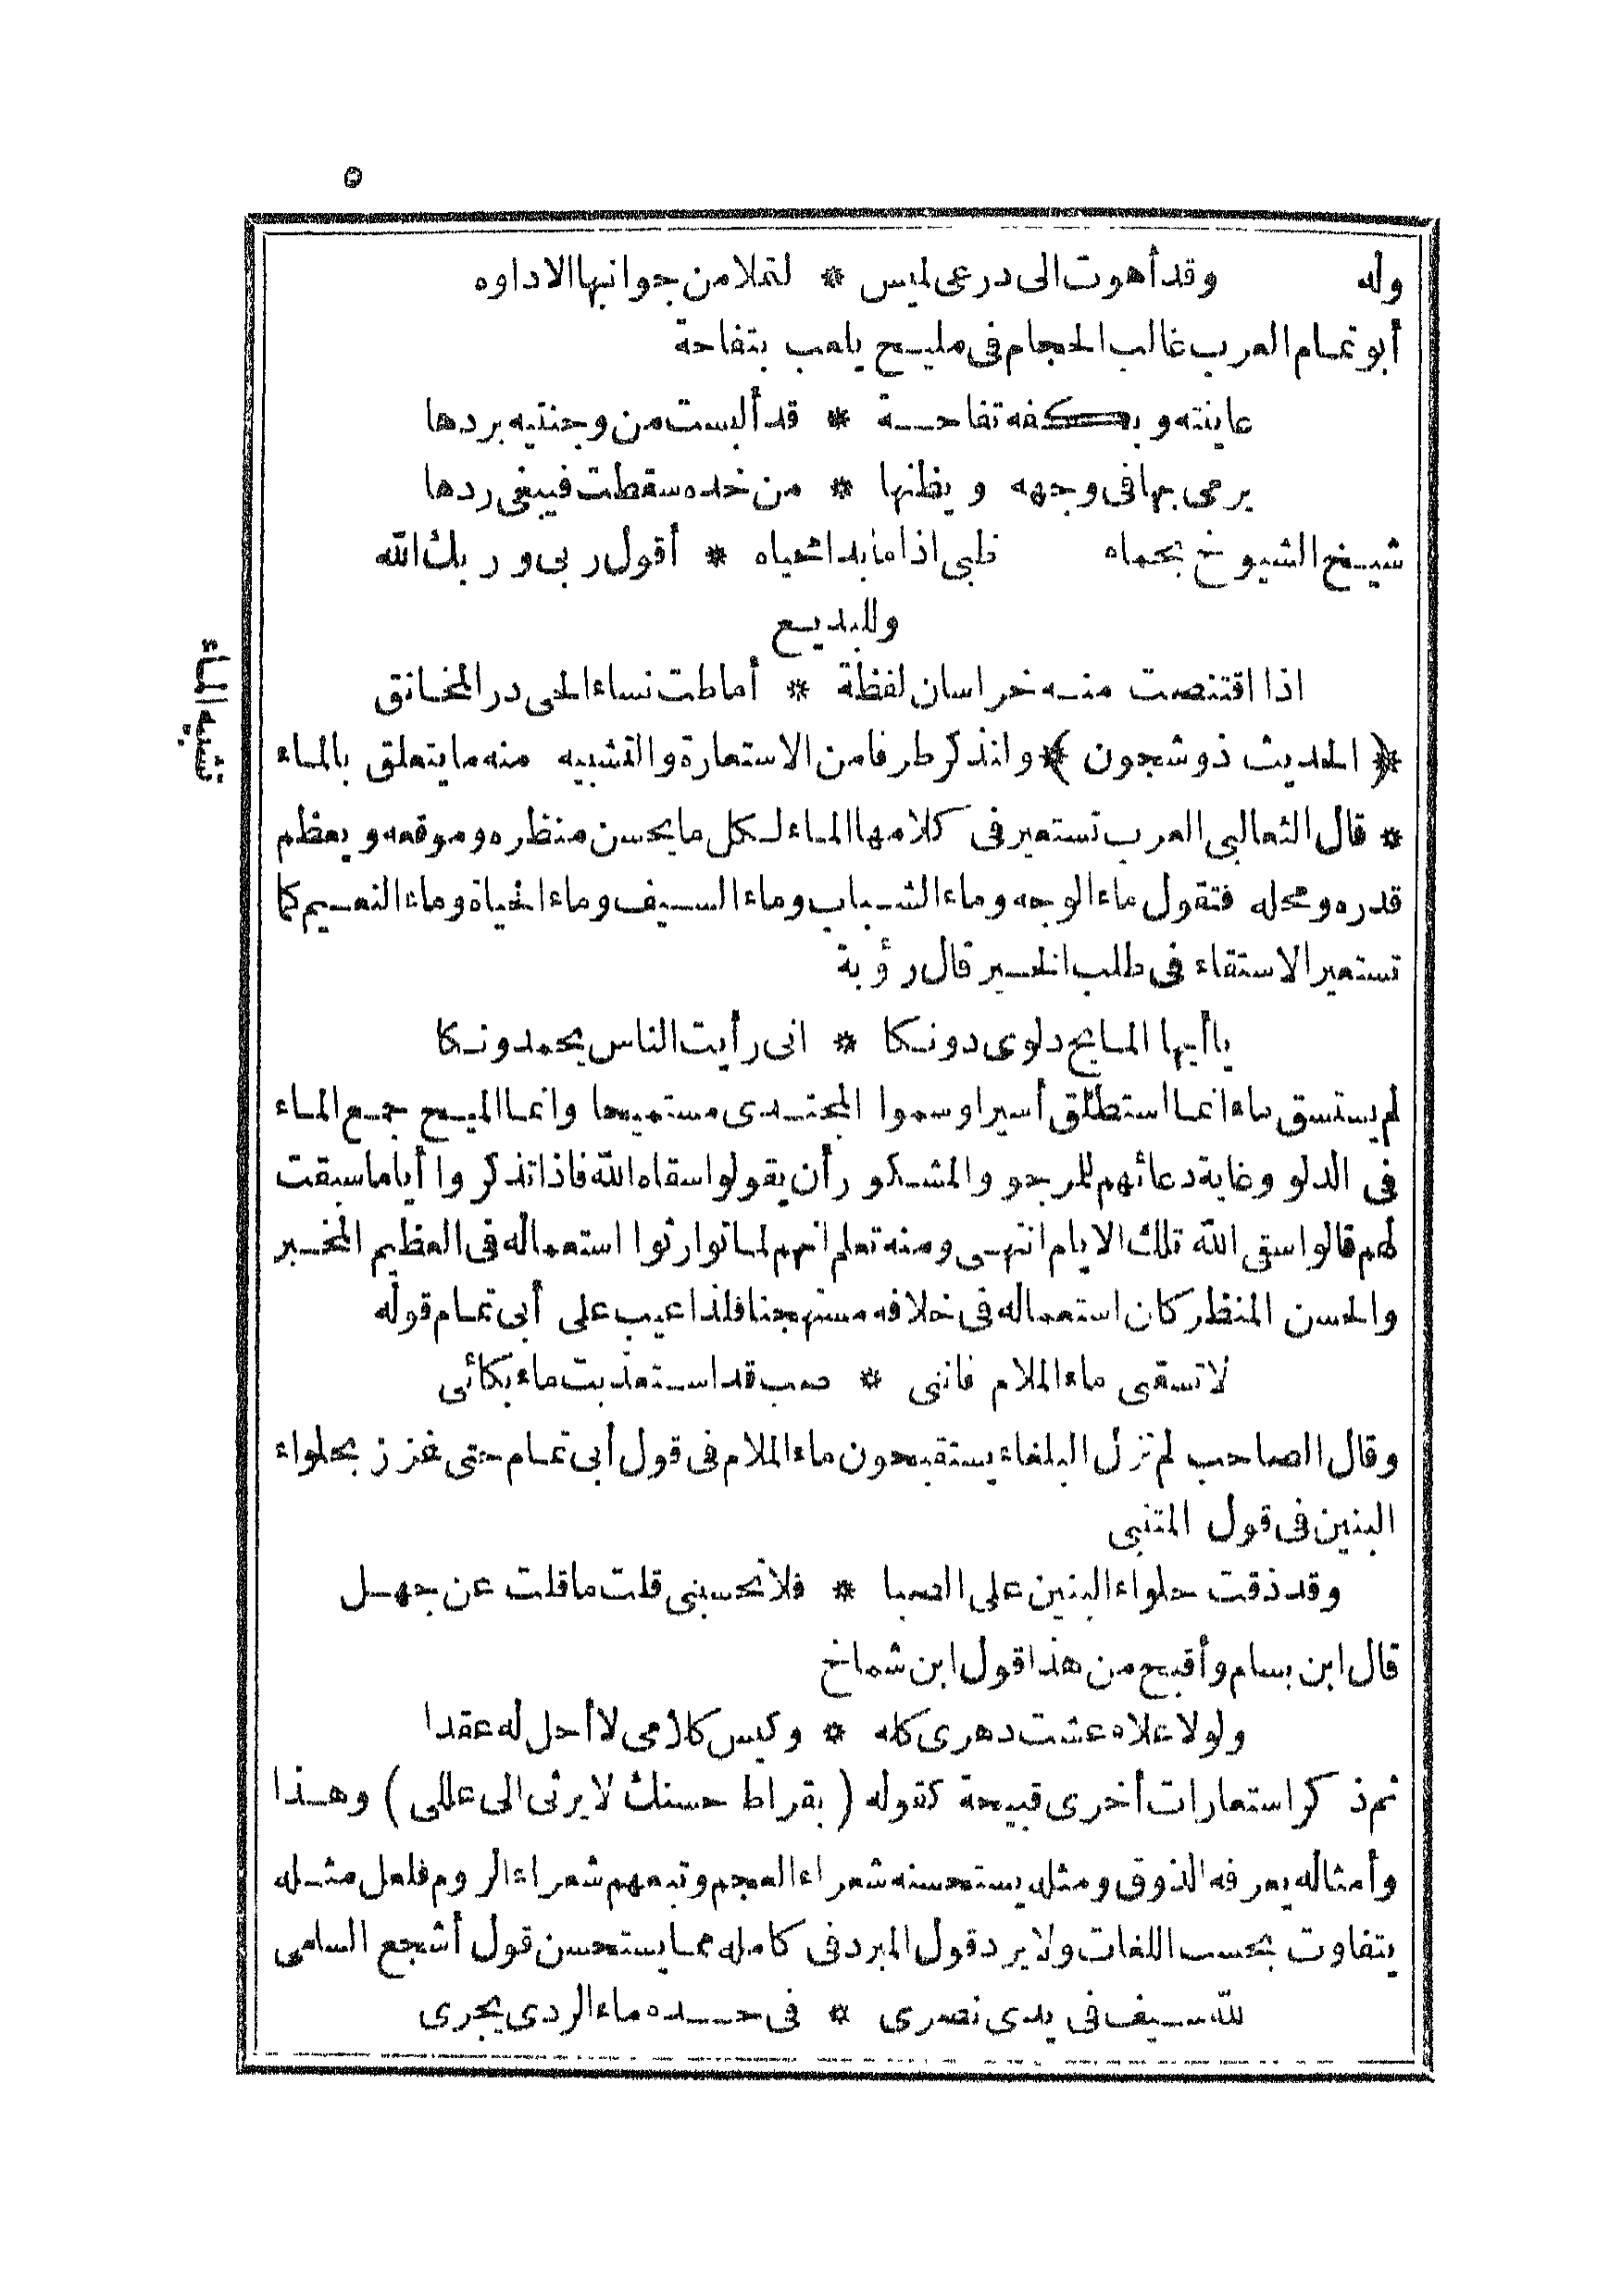 ٥
وله وقد أهوت الى درعى لميس * لتملا من جوانبها الاداوه
أبو تمام العرب غالب الحجام فى مليح يلعب بتفاحة
عاينته و بكفه تفاحة * قد ألبست من وجنتيه بردها
يرمى بها فى وجهه ويظنها * من خده سقطت فيبغى ردها
شيخ الشيوخ بحماه قلبى اذا ما بدا محياه * أقول ربى وربك الله
وللبديع
اذا اقتنصت منه خراسان لفظة * أماطت نساء الحى در المخانق
﴿ الحديث ذو شجون ﴾ ولنذكر طرفا من الاستعارة والتشبيه منه ما يتعلق بالماء
تشبيه الماء
* قال الثعالبى العرب تستعير فى كلامها الماء لكل ما يحسن منظره وموقعه ويعظم
قدره ومحله فتقول ماء الوجه وماء الشباب وماء السيف وماء الحياة وماء النعيم كما
تستعير الاستقاء فى طلب الخير قال رؤبة
يا أيها المايح دلوى دونكا * انى رأيت الناس يحمدونكا
لم يستسق ماء انما استطلق أسيرا وسموا المجتدى مستميحا وانما الميح جمع الماء
فى الدلو وغاية دعائهم للمرجو والمشكور أن يقولوا سقاه الله فاذا تذكروا أياما سبقت
لهم قالوا سقى الله تلك الايام انتهى ومنه تعلم انهم لما توارثوا استعماله فى العظيم المخبر
والحسن المنظر كان استعماله فى خلافه مستهجنا فلذا عيب على أبى تمام قوله
لا تسقنى ماء الملام فاننى * صب قد استعذبت ماء بكائى
وقال الصاحب لم تزل البلغاء يستقبحون ماء الملام فى قول أبى تمام حتى غزز بحلواء
البنين فى قول المتنبى
وقد ذقت حلواء البنين على الصبا * فلا تحسبنى قلت ما قلت عن جهل
قال ابن بسام وأقبح من هذا قول ابن شماخ
ولولا علاه عشت دهرى كله * وكيس كلامى لا أحل له عقدا
ثم ذكر استعارات أخرى قبيحة كقوله ( بقراط حسنك لا يرثى الى عللى ) وهذا
وأمثاله يعرفه الذوق ومثله يستحسنه شعراء العجم وتبعهم شعراء الروم فلعل مثله
يتفاوت بحسب اللغات ولا يرد قول المبرد فى كامله مما يستحسن قول أشجع السلمى
لله سيف فى يدى نصرى * فى حده ماء الردى يجرى